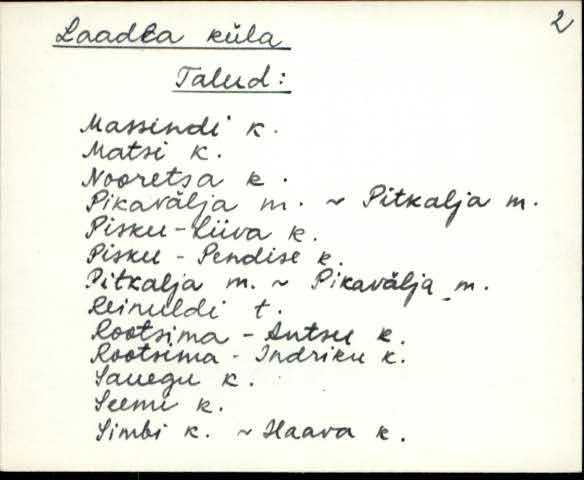 2
Laadla küla
Talud:
Massindi k.
Matsi k.
Nooretsa k.
Pikavälja m. ~ Pitkalja m.
Pisku-Liiva k.
Pisku - Pendise k.
Pitkalja m. ~ Pikavälja m.
Reinuldi t.
Rootsima - Antsu k.
Rootsima - Indriku k.
Sauegu k.
Seemi k.
Simbi k. ~ Haava k.